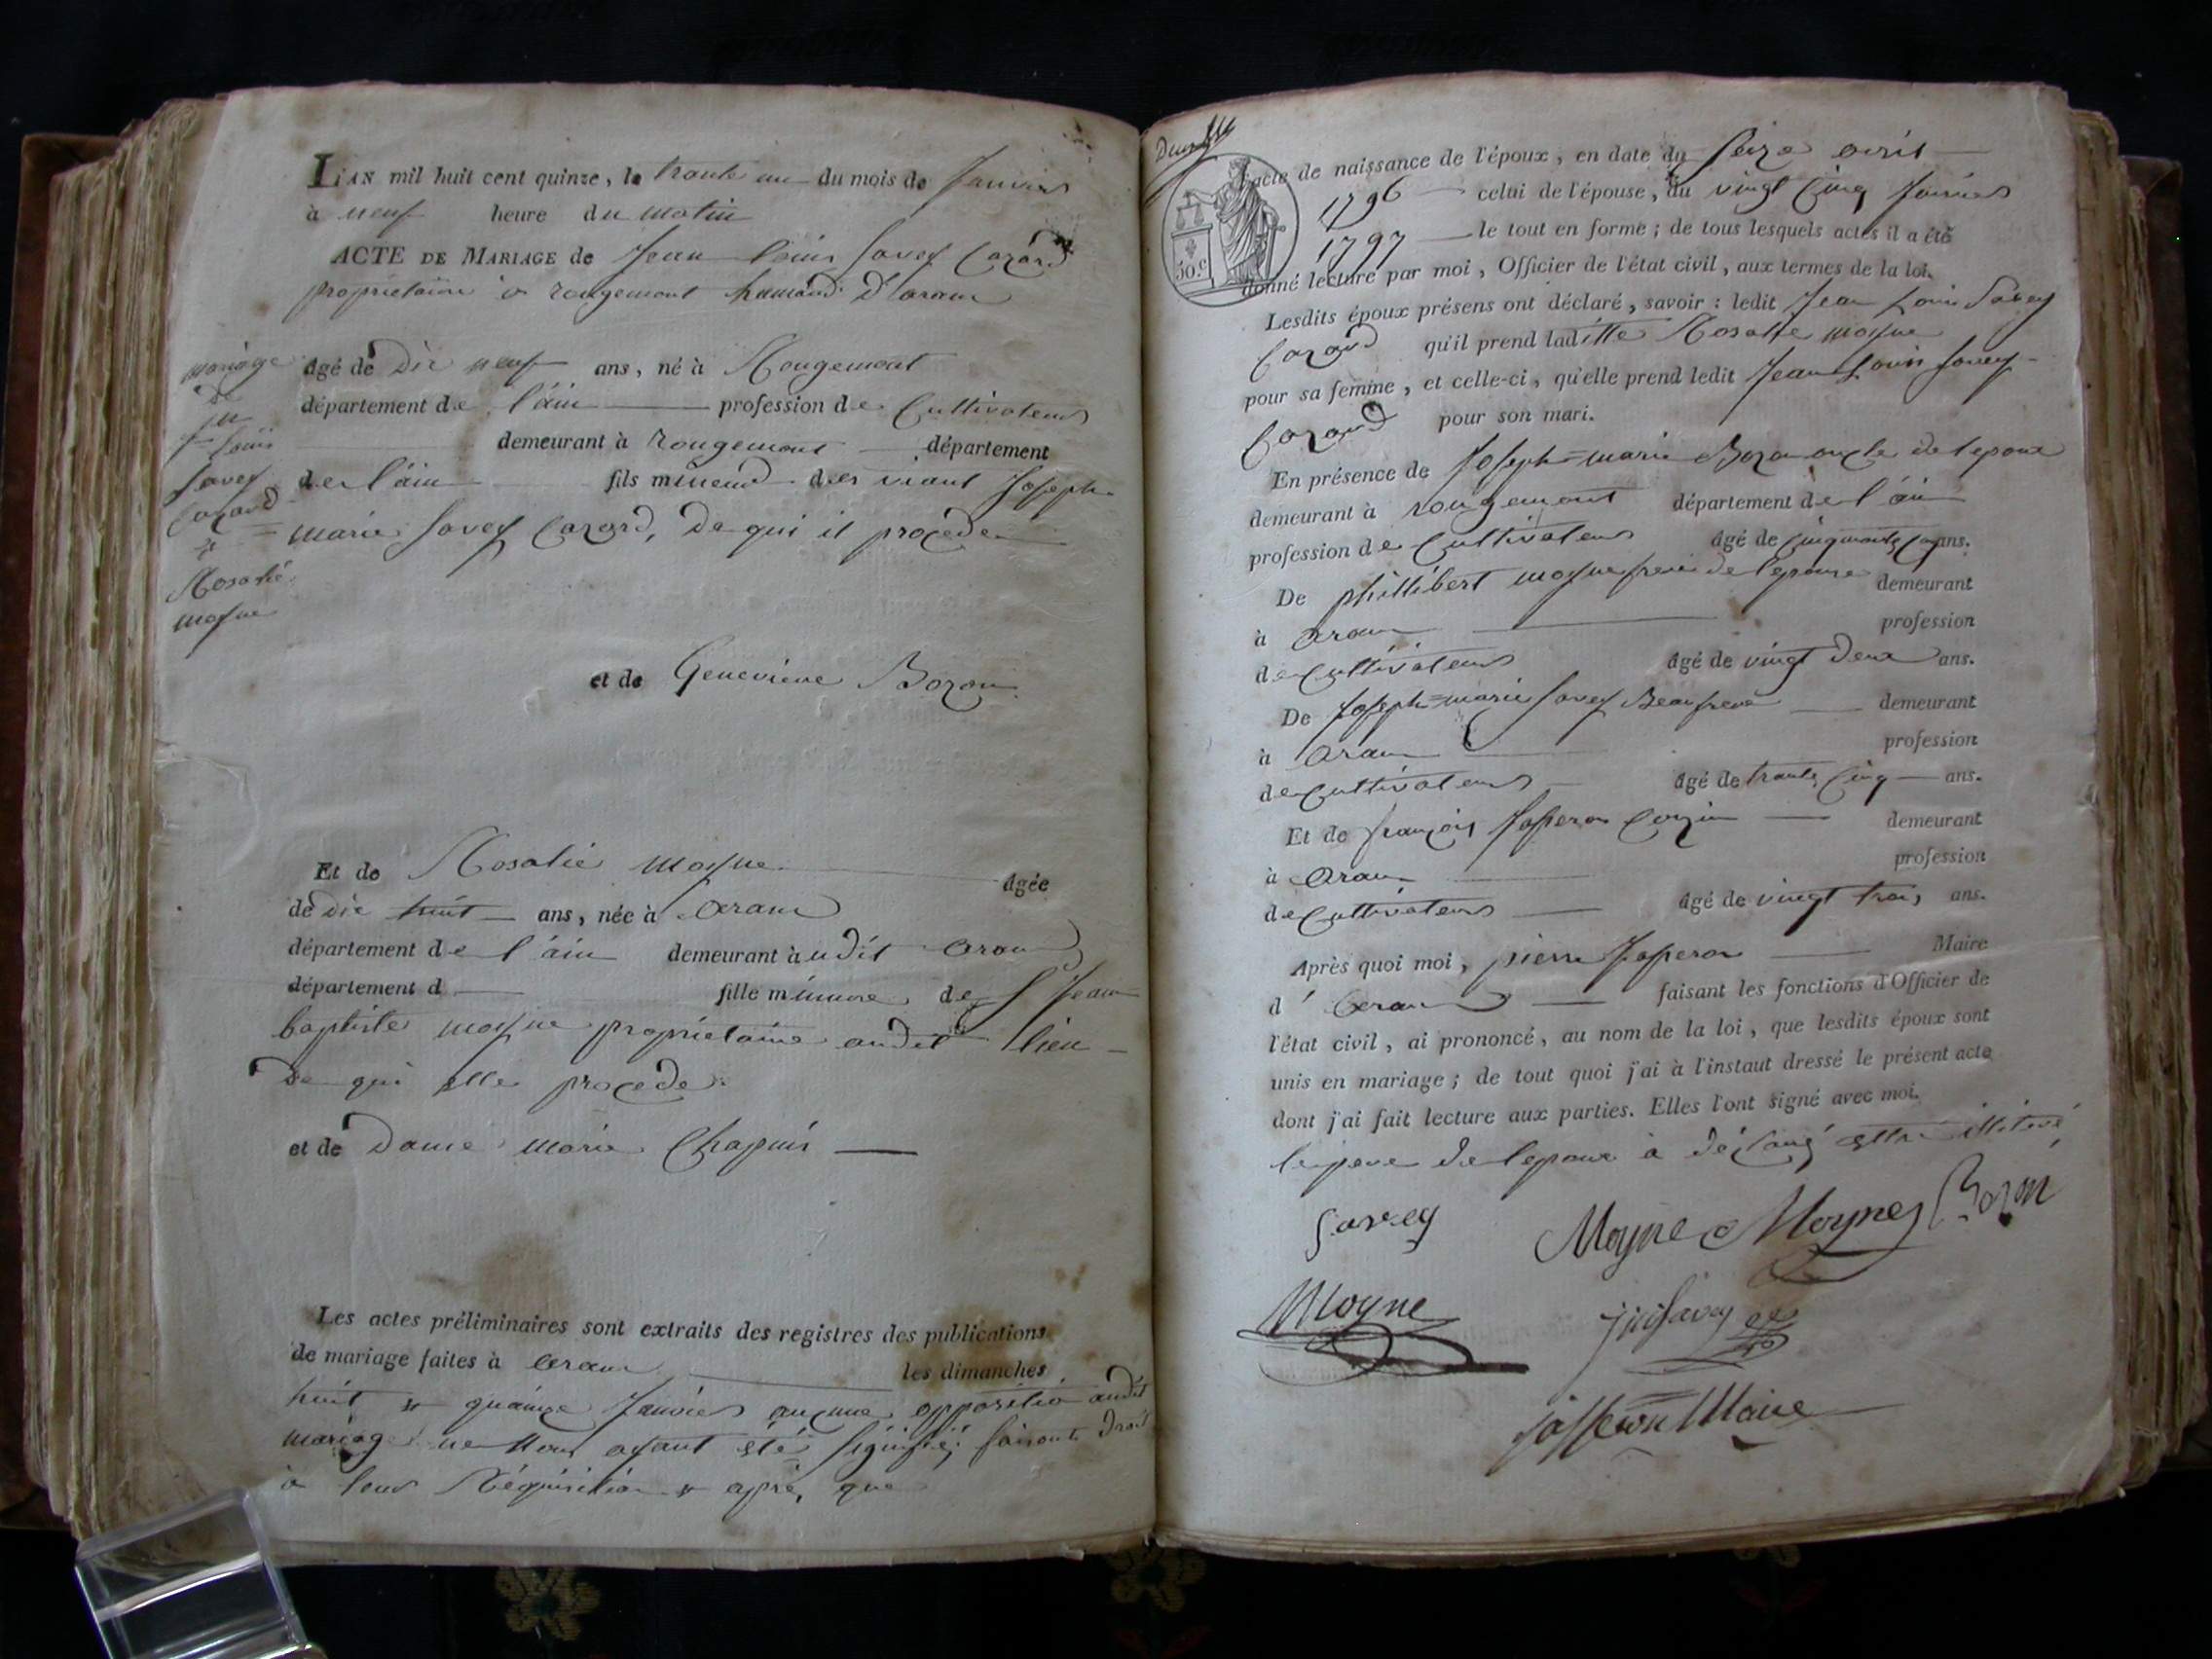 L'AN mil huit cent quinze, le trante un du mois de Janvier
à neuf heure du matin
ACTE DE MARIAGE de Jean louis Savey Cazard
propriétaire à rougemont hamaud d'aranc
mariage
de
jn
louis
Savey
Cazard
et
Rosalie
moyne
âgé de Dix neuf ans, né à Rougemont
département de l'ain profession de Cultivateur
demeurant à rougemont département
de l'ain fils mineur des viant Joseph
marie Savey Cazard, de qui il procede
et de Geneviève Bozon
Et de Rosalie moyne âgée
de dix huit ans, née à aranc
département de l'ain demeurant àudit aranc
département d fille mineure de Sr Jean
baptiste moyne propriétaire audit lieu
de qui elle procede
et de Dame marie Chapuis
Les actes préliminaires sont extraits des registres des publications
de mariage faites à aranc les dimanches
huit et quainze Janvier aucune oppositio audit
mariage ne nous ayant été signifié; faisant droit
à leur Réquisition et après que
50 C
L'acte de naissance de l'époux, en date du seize avril
1796 celui de l'épouse, du vingt Cinq Janvier
1797 le tout en forme; de tous lesquels actes il a été
donné lecture par moi, Officier de l'état civil, aux termes de la loi.
Lesdits époux présens ont déclaré, savoir: ledit Jean Louis Savey
Cazard qu'il prend laditte Rosalie moyne
pour sa femme, et celle-ci, qu'elle prend ledit Jean Louis Savey
Cazard pour son mari.
En présence de Joseph=marie Bozon oncle de lepoux
demeurant à rougemont département de l'ain
profession de Cultivateur âgé de Cinquante ans.
De phillibert moyne frere de lepouse demeurant
à aranc profession
de Cultivateur âgé de vingt deux ans.
De Joseph=marie Savey Beaufrere demeurant
à aranc profession
de Cultivateur âgé de trante Cinq ans.
Et de françois Jasseron Cousin demeurant
à aranc profession
de Cultivateur âgé de vingt trois ans.
Après quoi moi, pierre Jasseron Maire
d' aranc faisant les fonctions d'Officier de
l'état civil, ai prononcé, au nom de la loi, que lesdits époux sont
unis en mariage; de tout quoi j'ai à l'instant dressé le présent acte
dont j'ai fait lecture aux parties. Elles l'ont signé avec moi.
le pere de lepoux à déclaré estre illiteré
Savey Moyne Moyne Bozon
Moyne Savey
jasseron Maire